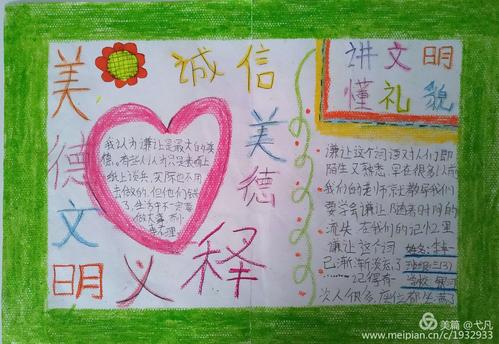 美德文明
诚信
美德
义
释
讲文明
懂礼貌
我认为谦让是最大的美
德。有些人认为只是表面上
纸上谈兵,实际也不用
去做的,但他们错
了,生活中不一定要
做大事
谦让这个词语对人们即
陌生又熟悉,早在很多以前
我们的老师家长教导我们
要学会谦让,随着时间的
流失 在我们的记忆里
谦让这个词
已渐渐淡忘了
记得有一
次人很多,座位都坐满了
姓名:李
班级:三(3)
学校:
美篇 @弋凡
www.meipian.cn/c/1932933